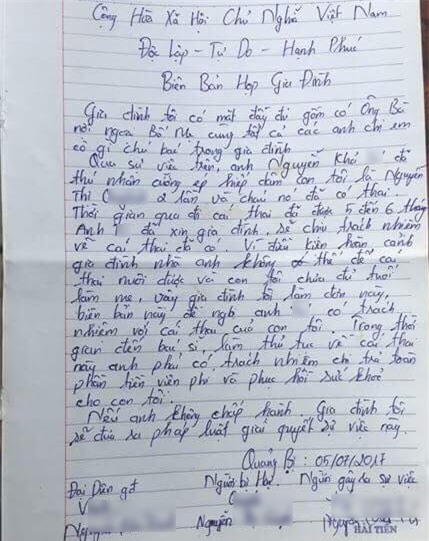 Cộng Hòa Xã Hội Chủ Nghĩa Việt Nam
Độc Lập - Tự Do - Hạnh Phúc
Biên Bản Họp Gia Đình
Gia đình tôi có mặt đầy đủ gồm có Ông Bà
nội ngoại Bố Mẹ cùng tất cả các anh chị em
cô gì chú bác trong gia đình
Qua sự việc trên, anh Nguyễn Khả đã
thú nhân cưỡng ép hiếp dâm con tôi là Nguyễn
Thị C 2 lần và cháu nó đã có thai.
Thời gian qua đi cái thai đã được 5 đến 6 tháng
Anh đã xin gia đình, sẽ chịu trách nhiệm
về cái thai đã có. Vì điều kiện hoàn cảnh
gia đình nhà anh không thể để cái
thai nuôi được và con tôi chưa đủ tuổi
làm mẹ, vậy gia đình tôi làm đơn này,
biên bản này đề nghị anh có trách
nhiệm với cái thai của con tôi. Trong thời
gian đến bác sĩ, làm thủ tục về cái thai
này anh phải có trách nhiệm chi trả toàn
phần tiền viện phí và phục hồi sức khỏe
cho con tôi.
Nếu anh không chấp hành. Gia đình tôi
sẽ đưa ra pháp luật giải quyết sự việc này.
Quảng Bị : 05/07/2017
Đại Diện gđ Người bị Hại Người gây ra sự việc
V
Nguyễn Nguyễn
HẢI TIẾN